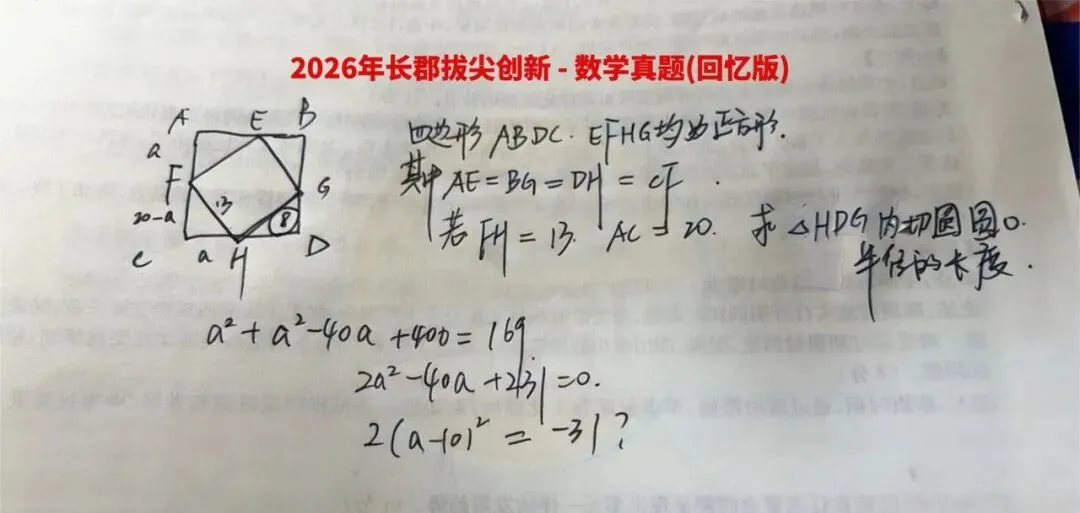 2026年长郡拔尖创新 - 数学真题(回忆版)
A E B
a
F G
13
20-a 8
C a H D
四边形 ABDC. EFHG均为正方形.
其中 AE=BG=DH=CF.
若 FH=13. AC=20. 求 △HDG 内切圆圆O.
半径的长度.
a²+a²-40a+400=169.
2a²-40a+231=0.
2(a-10)²=-31?